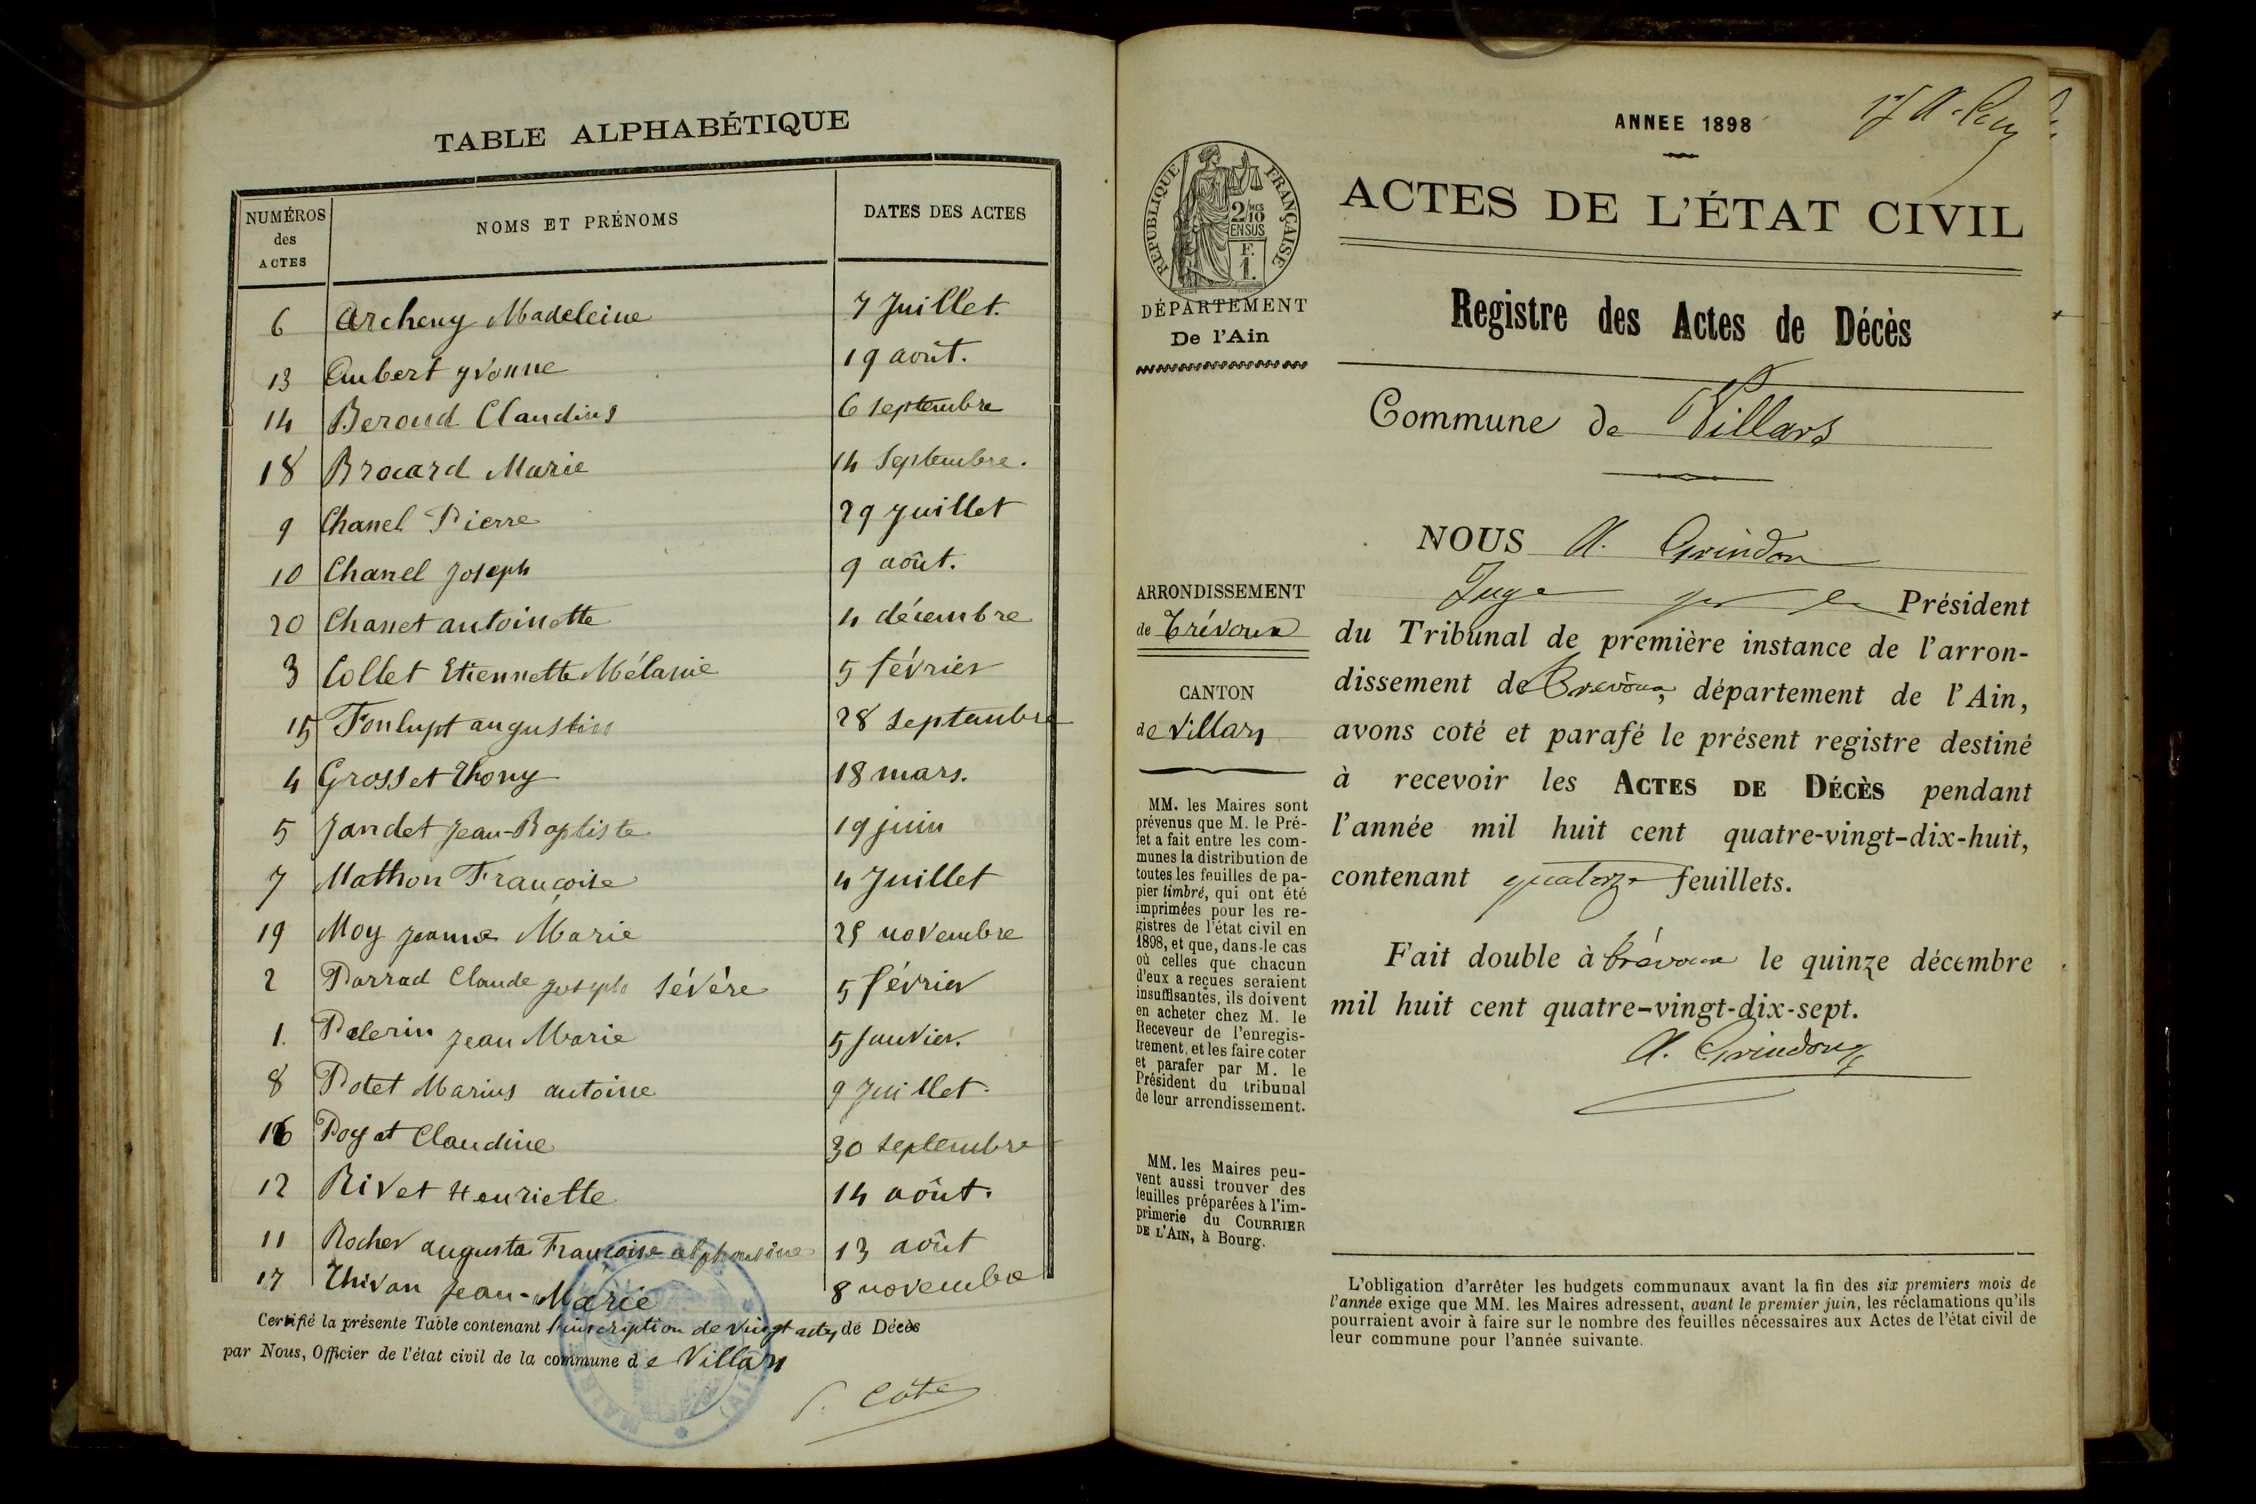 TABLE ALPHABÉTIQUE
NUMÉROS des ACTES NOMS ET PRÉNOMS DATES DES ACTES
6 Archeny Madeleine 7 Juillet.
13 Aubert yvonne 19 août.
14 Beroud Claudius 6 septembre
18 Brocard Marie 14 Septembre.
9 Chanel Pierre 29 juillet
10 Chanel Joseph 9 août.
20 Chanet antoinette 4 décembre
3 Collet Etiennette Mélanie 5 février
15 Fonlupt augustin 28 septembre
4 Grosset Thony 18 mars.
5 Jandet Jean-Baptiste 19 juin
7 Mathon Françoise 4 Juillet
19 Moy Jeanne Marie 25 novembre
2 Parrad Claude Joseph Sévère 5 février
1. Pelerin Jean Marie 5 Janvier.
8 Potet Marius antoine 9 Juillet.
16 Poyat Claudine 30 septembre
12 Rivet Henriette 14 août.
11 Rocher augusta Françoise alphonsine 13 août
17 Thivan Jean-Marie 8 novembre
Certifié la présente Table contenant l'inscription de vingt actes de Décès
par Nous, Officier de l'état civil de la commune de Villars
Côte
ANNEE 1898
RÉPUBLIQUE FRANÇAISE
2/10 MES
EN SUS
F.
1.
DÉPARTEMENT
De l'Ain
ARRONDISSEMENT
de Trévoux
CANTON
de Villars
MM. les Maires sont
prévenus que M. le Pré-
fet a fait entre les com-
munes la distribution de
toutes les feuilles de pa-
pier timbré, qui ont été
imprimées pour les re-
gistres de l'état civil en
1898, et que, dans le cas
où celles que chacun
d'eux a reçues seraient
insuffisantes, ils doivent
en acheter chez M. le
Receveur de l'enregis-
trement, et les faire coter
et parafer par M. le
Président du tribunal
de leur arrondissement.
MM. les Maires peu-
vent aussi trouver des
feuilles préparées à l'im-
primerie du COURRIER
DE L'AIN, à Bourg.
ACTES DE L'ÉTAT CIVIL
Registre des Actes de Décès
Commune de Villars
NOUS A. Grindon
Juge pr le Président
du Tribunal de première instance de l'arron-
dissement de Trévoux, département de l'Ain,
avons coté et parafé le présent registre destiné
à recevoir les ACTES DE DÉCÈS pendant
l'année mil huit cent quatre-vingt-dix-huit,
contenant quatorze feuillets.
Fait double à Trévoux le quinze décembre
mil huit cent quatre-vingt-dix-sept.
A. Grindon
L'obligation d'arrêter les budgets communaux avant la fin des six premiers mois de
l'année exige que MM. les Maires adressent, avant le premier juin, les réclamations qu'ils
pourraient avoir à faire sur le nombre des feuilles nécessaires aux Actes de l'état civil de
leur commune pour l'année suivante.